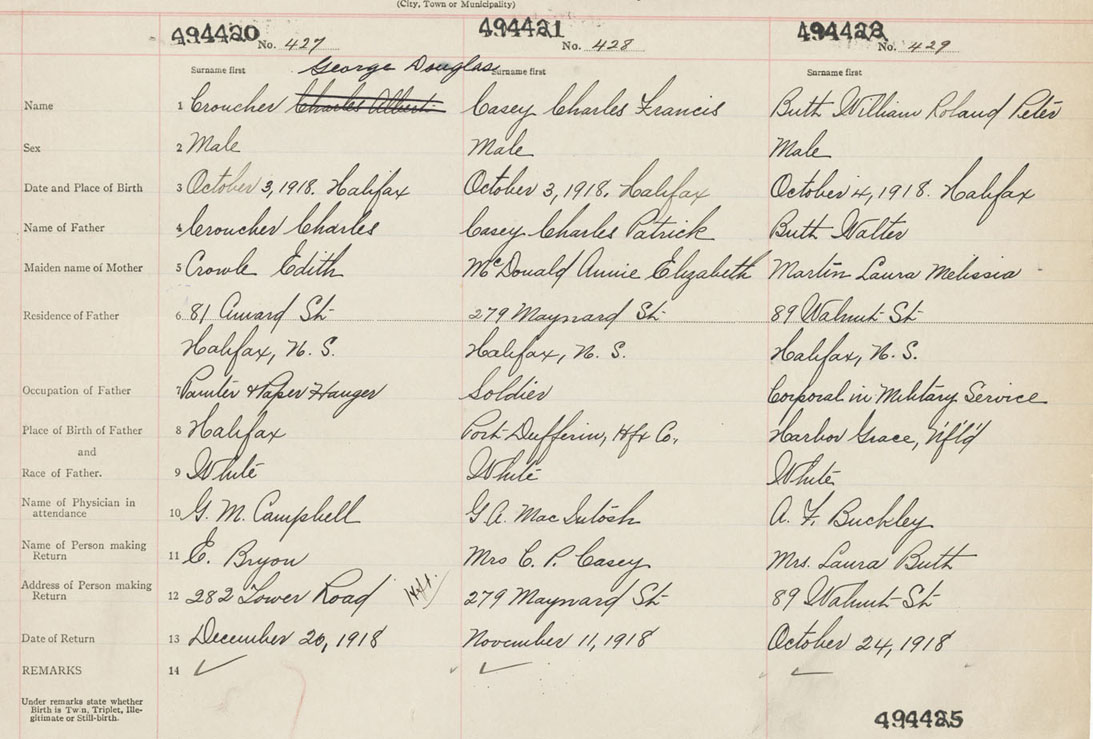 (City, Town or Municipality)
494420 494421 494423
No. 427 No. 428 No. 429
George Douglas
Surname first Surname first Surname first
Name 1 Croucher Charles Albert Casey Charles Francis Buth William Roland Peter
Sex 2 Male Male Male
Date and Place of Birth 3 October 3, 1918. Halifax October 3, 1918. Halifax October 4, 1918. Halifax
Name of Father 4 Croucher Charles Casey Charles Patrick Buth Walter
Maiden name of Mother 5 Crowle Edith McDonald Annie Elizabeth Martin Laura Melissia
Residence of Father 6 81 St 279 Maynard St 89 Walnut St
Halifax, N. S. Halifax, N. S. Halifax, N. S.
Occupation of Father 7 Painter & Paper Hanger Soldier Corporal in Military Service
Place of Birth of Father 8 Halifax Port Dufferin, Hfx Co. Harbor Grace, N'f'l'd
and
Race of Father. 9 White White White
Name of Physician in
attendance 10 G. M. Campbell G. A. MacIntosh A. F. Buckley
Name of Person making
Return 11 E. Bryon Mrs C. P. Casey Mrs. Laura Buth
Address of Person making
Return 12 282 Tower Road Hfx. 279 Maynard St 89 Walnut St
Date of Return 13 December 20, 1918 November 11, 1918 October 24, 1918
REMARKS 14
Under remarks state whether
Birth is Twin, Triplet, Ille-
gitimate or Still-birth.
494425